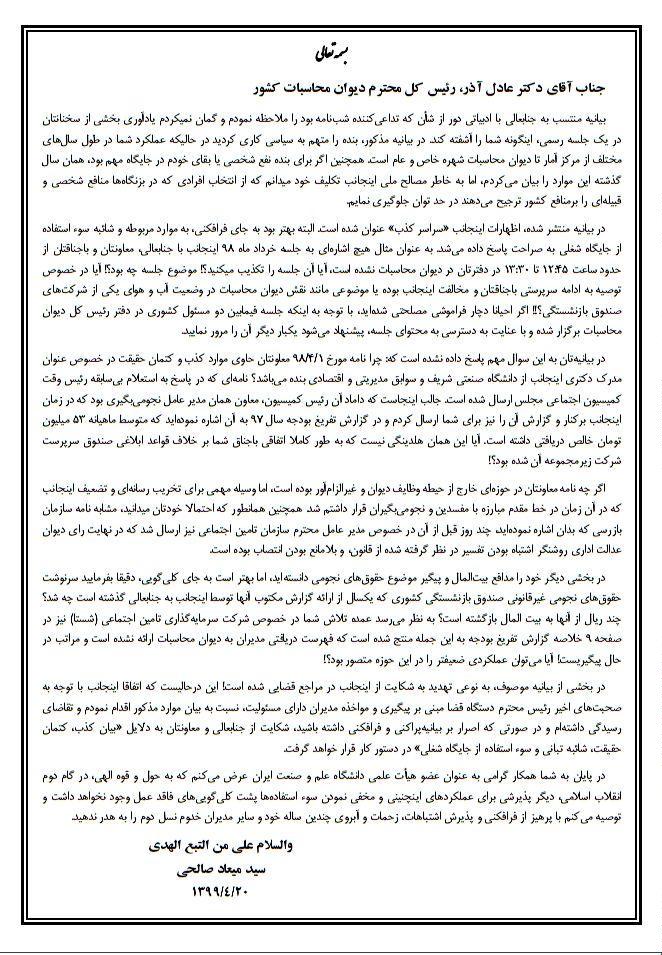 بسمه تعالی
جناب آقای دکتر عادل آذر، رئیس کل محترم دیوان محاسبات کشور
بیانیه منتسب به جنابعالی با ادبیاتی دور از شأن که تداعی‌کننده شب‌نامه بود را ملاحظه نمودم و گمان نمیکردم یادآوری بخشی از سخنانتان
در یک جلسه رسمی، اینگونه شما را آشفته کند. در بیانیه مذکور، بنده را متهم به سیاسی کاری کردید در حالیکه عملکرد شما در طول سال‌های
مختلف از مرکز آمار تا دیوان محاسبات شهره خاص و عام است. همچنین اگر برای بنده نفع شخصی یا بقای خودم در جایگاه مهم بود، همان سال
گذشته این موارد را بیان می‌کردم، اما به خاطر مصالح ملی اینجانب تکلیف خود میدانم که از انتخاب افرادی که در بزنگاه‌ها منافع شخصی و
قبیله‌ای را برمنافع کشور ترجیح می‌دهند در حد توان جلوگیری نمایم.
در بیانیه منتشر شده، اظهارات اینجانب «سراسر کذب» عنوان شده است. البته بهتر بود به جای فرافکنی، به موارد مربوطه و شائبه سوء استفاده
از جایگاه شغلی به صراحت پاسخ داده می‌شد. به عنوان مثال هیچ اشاره‌ای به جلسه خرداد ماه ۹۸ اینجانب با جنابعالی، معاونتان و باجناقتان از
حدود ساعت ۱۲:۴۵ تا ۱۳:۳۰ در دفترتان در دیوان محاسبات نشده است، آیا آن جلسه را تکذیب میکنید؟! موضوع جلسه چه بود؟! آیا در خصوص
توصیه به ادامه سرپرستی باجناقتان و مخالفت اینجانب بوده یا موضوعی مانند نقش دیوان محاسبات در وضعیت آب و هوای یکی از شرکت‌های
صندوق بازنشستگی؟!! اگر احیانا دچار فراموشی مصلحتی شده‌اید، با توجه به اینکه جلسه فیمابین دو مسئول کشوری در دفتر رئیس کل دیوان
محاسبات برگزار شده و با عنایت به دسترسی به محتوای جلسه، پیشنهاد می‌شود یکبار دیگر آن را مرور نمایید.
در بیانیه‌تان به این سوال مهم پاسخ داده نشده است که: چرا نامه مورخ ۹۸/۴/۱ معاونتان حاوی موارد کذب و کتمان حقیقت در خصوص عنوان
مدرک دکتری اینجانب از دانشگاه صنعتی شریف و سوابق مدیریتی و اقتصادی بنده می‌باشد؟ نامه‌ای که در پاسخ به استعلام بی‌سابقه رئیس وقت
کمیسیون اجتماعی مجلس ارسال شده است. جالب اینجاست که داماد آن رئیس کمیسیون، معاون همان مدیر عامل نجومی‌بگیری بود که در زمان
اینجانب برکنار و گزارش آن را نیز برای شما ارسال کردم و در گزارش تفریغ بودجه سال ۹۷ به آن اشاره نموده‌اید که متوسط ماهیانه ۵۳ میلیون
تومان خالص دریافتی داشته است. آیا این همان هلدینگی نیست که به طور کاملا اتفاقی باجناق شما بر خلاف قواعد ابلاغی صندوق سرپرست
شرکت زیرمجموعه آن شده بود؟!
اگر چه نامه معاونتان در حوزه‌ای خارج از حیطه وظایف دیوان و غیرالزام‌آور بوده است، اما وسیله مهمی برای تخریب رسانه‌ای و تضعیف اینجانب
که در آن زمان در خط مقدم مبارزه با مفسدین و نجومی‌بگیران قرار داشتم شد. همچنین همانطور که احتمالا خودتان میدانید، مشابه نامه سازمان
بازرسی که بدان اشاره نموده‌اید، چند روز قبل از آن در خصوص مدیر عامل محترم سازمان تامین اجتماعی نیز ارسال شد که در نهایت رای دیوان
عدالت اداری روشنگر اشتباه بودن تفسیر در نظر گرفته شده از قانون، و بلامانع بودن انتصاب بوده است.
در بخشی دیگر خود را مدافع بیت‌المال و پیگیر موضوع حقوق‌های نجومی دانسته‌اید، اما بهتر است به جای کلی‌گویی، دقیقا بفرمایید سرنوشت
حقوق‌های نجومی غیرقانونی صندوق بازنشستگی کشوری که یکسال از ارائه گزارش مکتوب آنها توسط اینجانب به جنابعالی گذشته است چه شد؟
چند ریال از آنها به بیت المال بازگشته است؟ به نظر می‌رسد عمده تلاش شما در خصوص شرکت سرمایه‌گذاری تامین اجتماعی (شستا) نیز در
صفحه ۹ خلاصه گزارش تفریغ بودجه به این جمله منتج شده است که فهرست دریافتی مدیران به دیوان محاسبات ارائه نشده است و مراتب در
حال پیگیریست! آیا می‌توان عملکردی ضعیفتر را در این حوزه متصور بود؟!
در بخشی از بیانیه موصوف، به نوعی تهدید به شکایت از اینجانب در مراجع قضایی شده است! این درحالیست که اتفاقا اینجانب با توجه به
صحبت‌های اخیر رئیس محترم دستگاه قضا مبنی بر پیگیری و مواخذه مدیران دارای مسئولیت، نسبت به بیان موارد مذکور اقدام نمودم و تقاضای
رسیدگی داشته‌ام و در صورتی که اصرار بر بیانیه‌پراکنی و فرافکنی داشته باشید، شکایت از جنابعالی و معاونتان به دلایل «بیان کذب، کتمان
حقیقت، شائبه تبانی و سوء استفاده از جایگاه شغلی» در دستور کار قرار خواهد گرفت.
در پایان به شما همکار گرامی به عنوان عضو هیأت علمی دانشگاه علم و صنعت ایران عرض می‌کنم که به حول و قوه الهی، در گام دوم
انقلاب اسلامی، دیگر پذیرشی برای عملکردهای اینچنینی و مخفی نمودن سوء استفاده‌ها پشت کلی‌گویی‌های فاقد عمل وجود نخواهد داشت و
توصیه می‌کنم با پرهیز از فرافکنی و پذیرش اشتباهات، زحمات و آبروی چندین ساله خود و سایر مدیران خدوم نسل دوم را به هدر ندهید.
والسلام علی من التبع الهدی
سید میعاد صالحی
۱۳۹۹/٤/۲۰